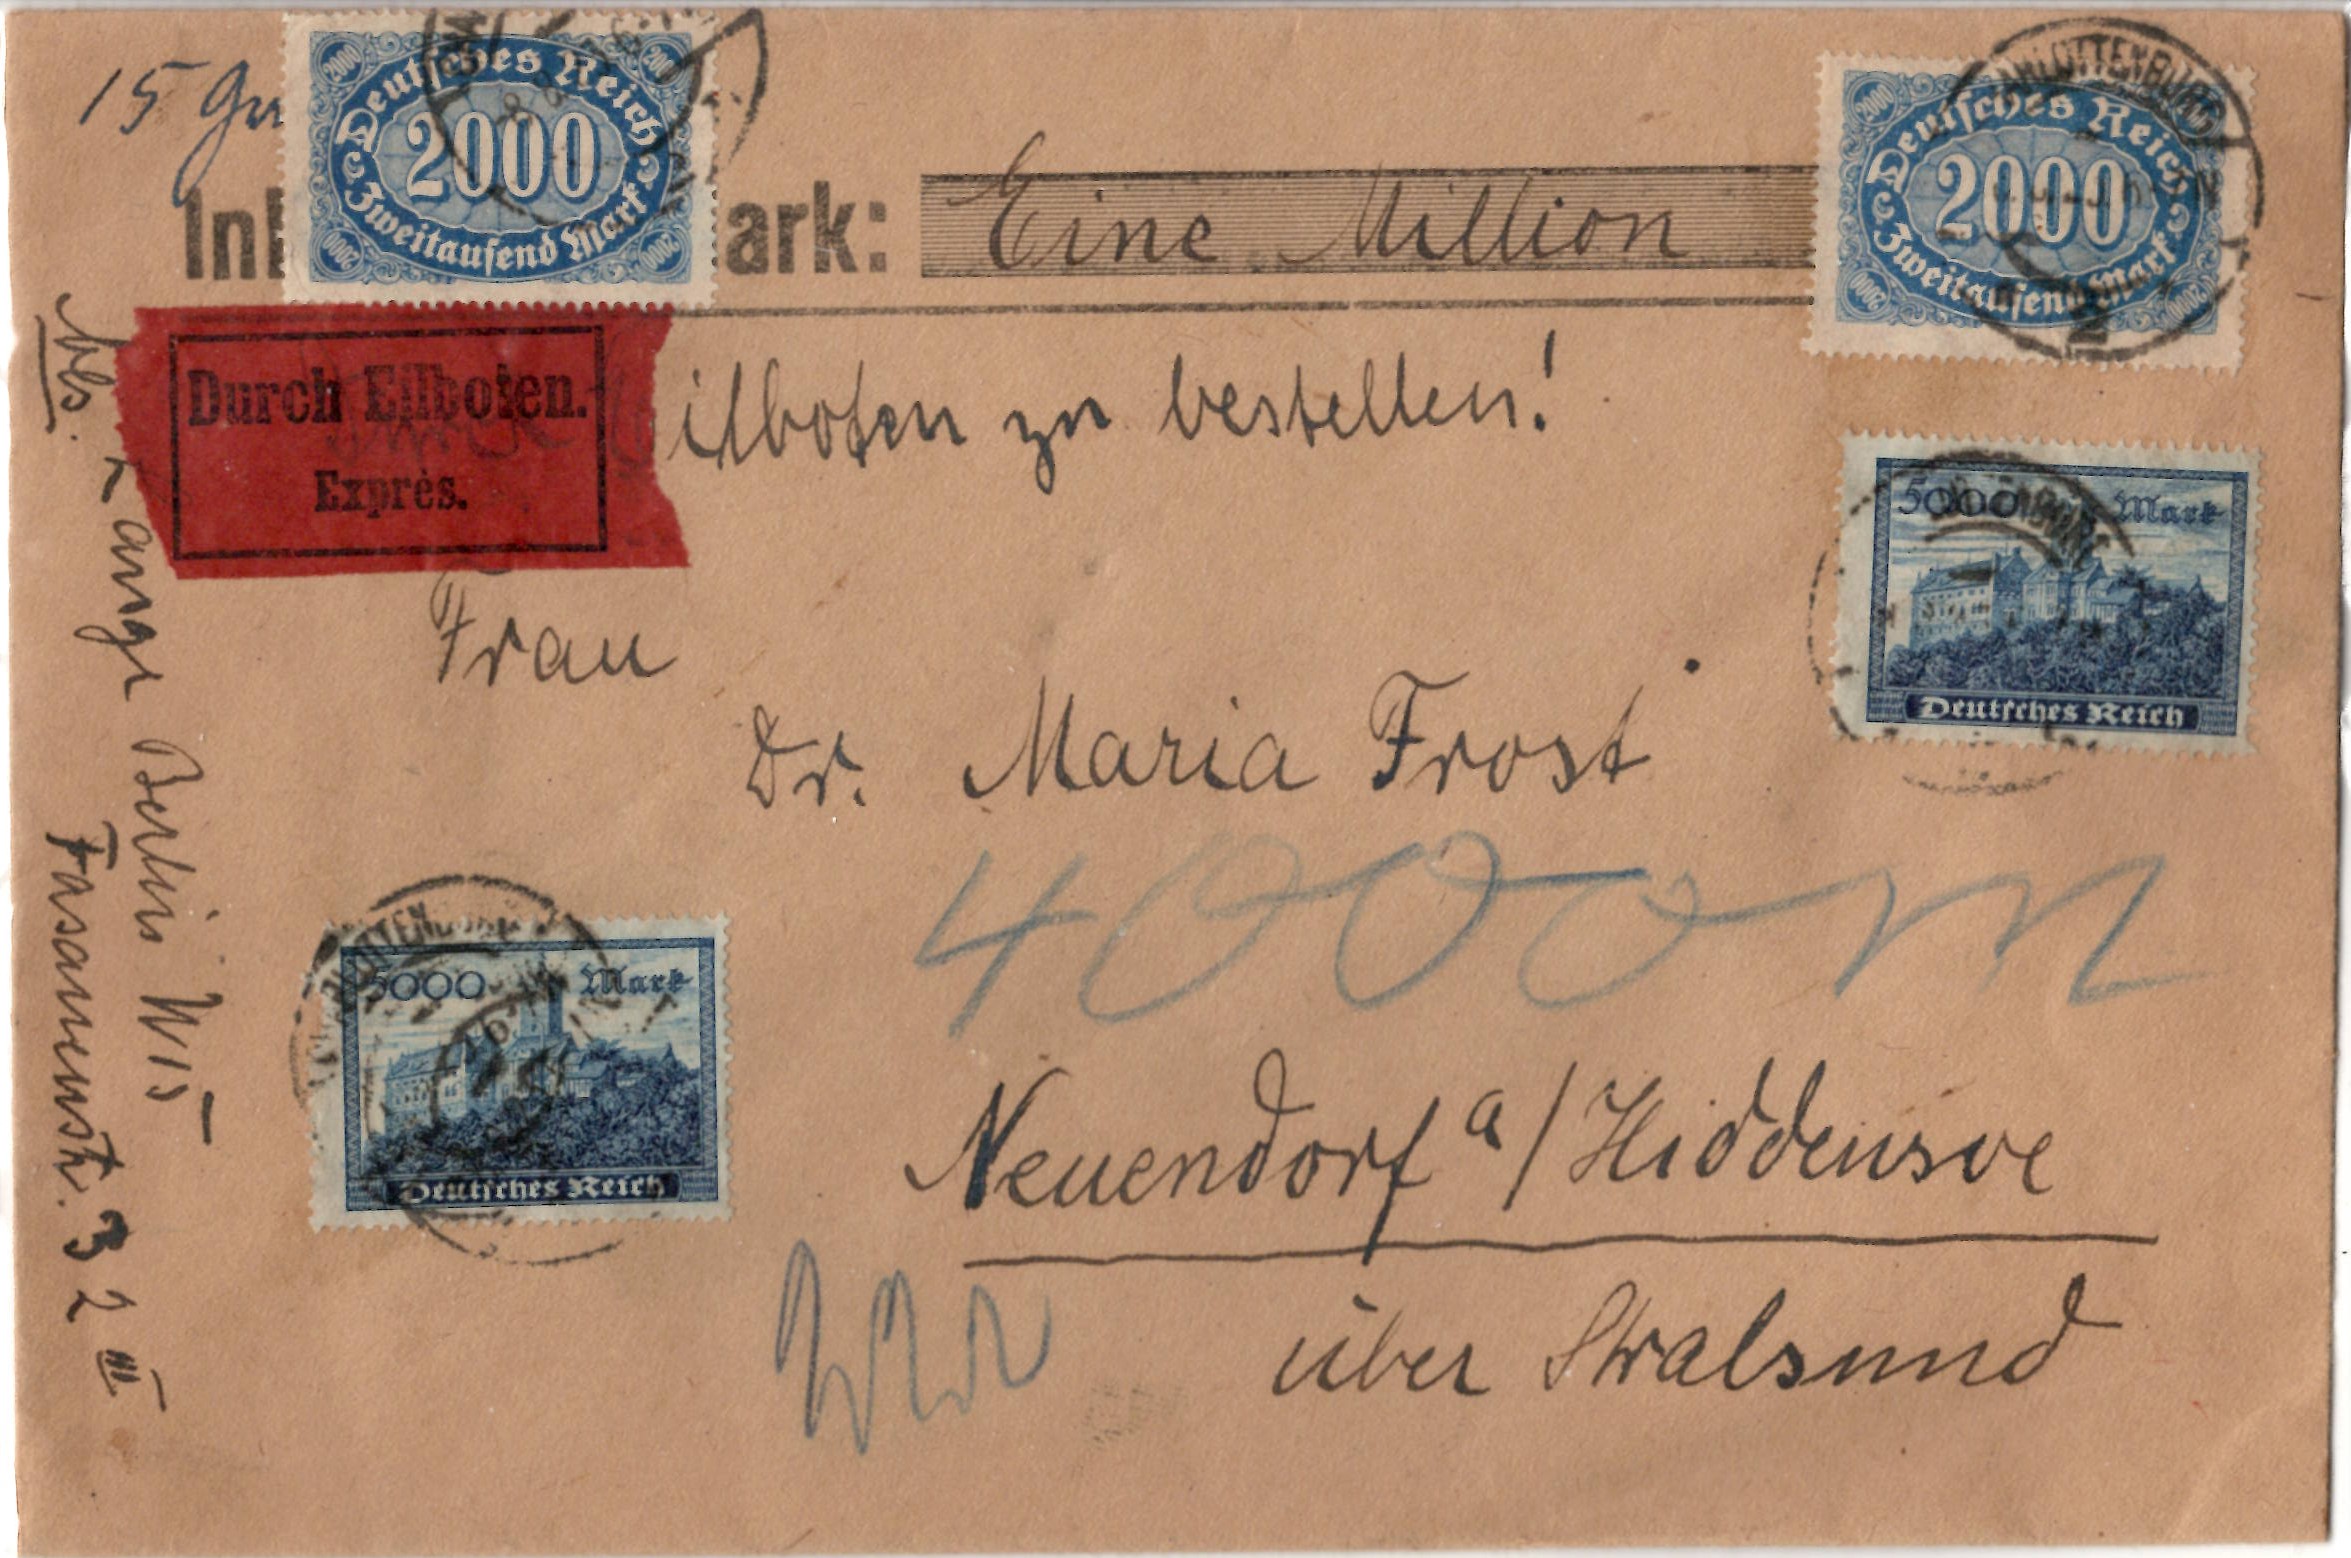 15
2000 2000
Deutsches Reich
2000
Zweitausend Mark
2000 2000
ark: Eine Million
CHARLOTTENBURG
2000
Deutsches Reich
2000
Zweitausend Mark
2000 2000
2
Durch Eilboten.
Exprès.
ilboten zu bestellen!
5000 Mark
Deutsches Reich
Frau
Dr. Maria Frost
4000 M
5000 Mark
Deutsches Reich
Neuendorf a/Hiddensoe
über Stralsund
Abs. Lange Berlin W15
Fasanenstr. 32 III